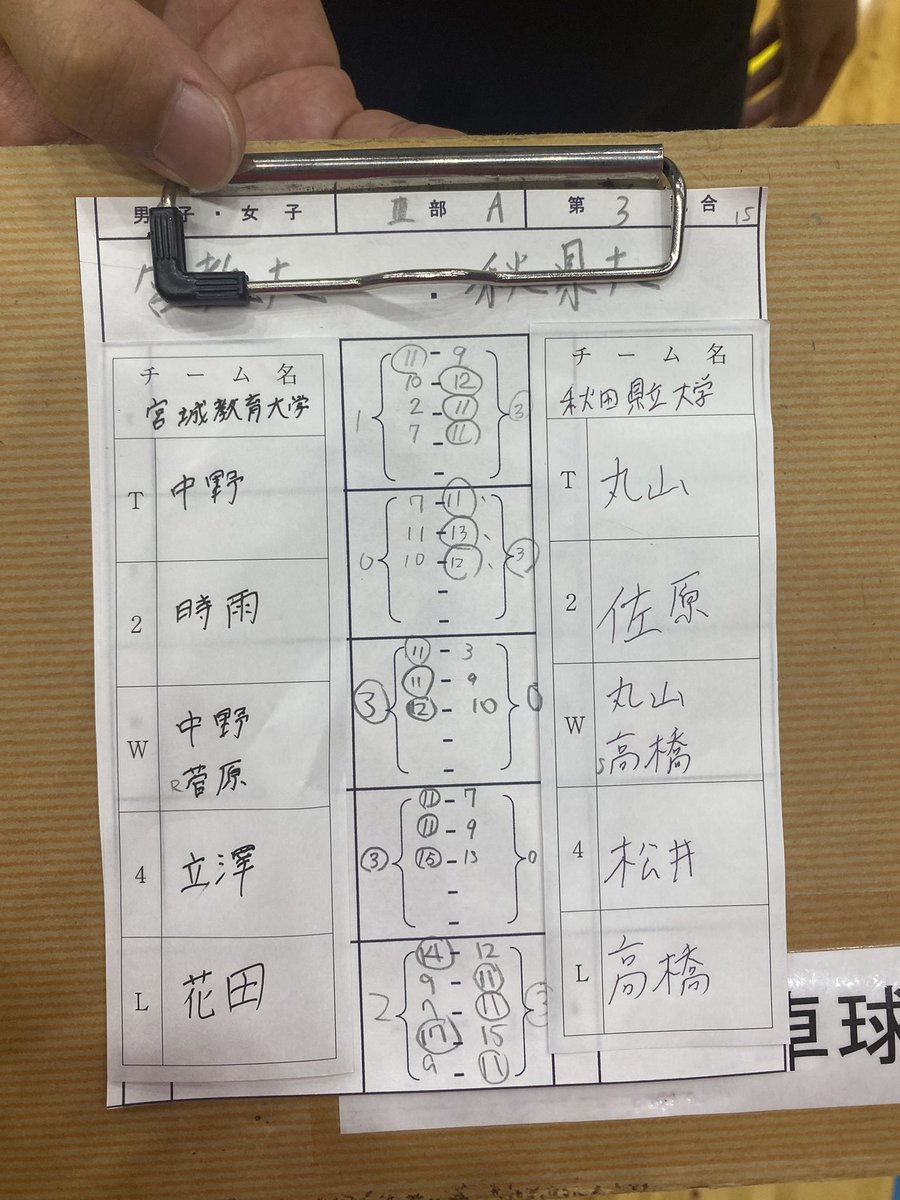 男子・女子 部 A 第 3 合 15
宮教大 ・ 秋県大
チーム名
宮城教育大学
T 中野
2 時雨
W 中野
R 菅原
4 立澤
L 花田
1 3
11 - 9
10 - 12
2 - 11
7 - 11
-
0 3
7 - 11
11 - 13
10 - 12
-
-
3 0
11 - 3
11 - 9
12 - 10
-
-
3 0
11 - 7
11 - 9
15 - 13
-
-
2 3
14 - 12
9 - 11
7 - 11
17 - 15
9 - 11
チーム名
秋田県立大学
T 丸山
2 佐原
W 丸山
S 高橋
4 松井
L 高橋
卓球